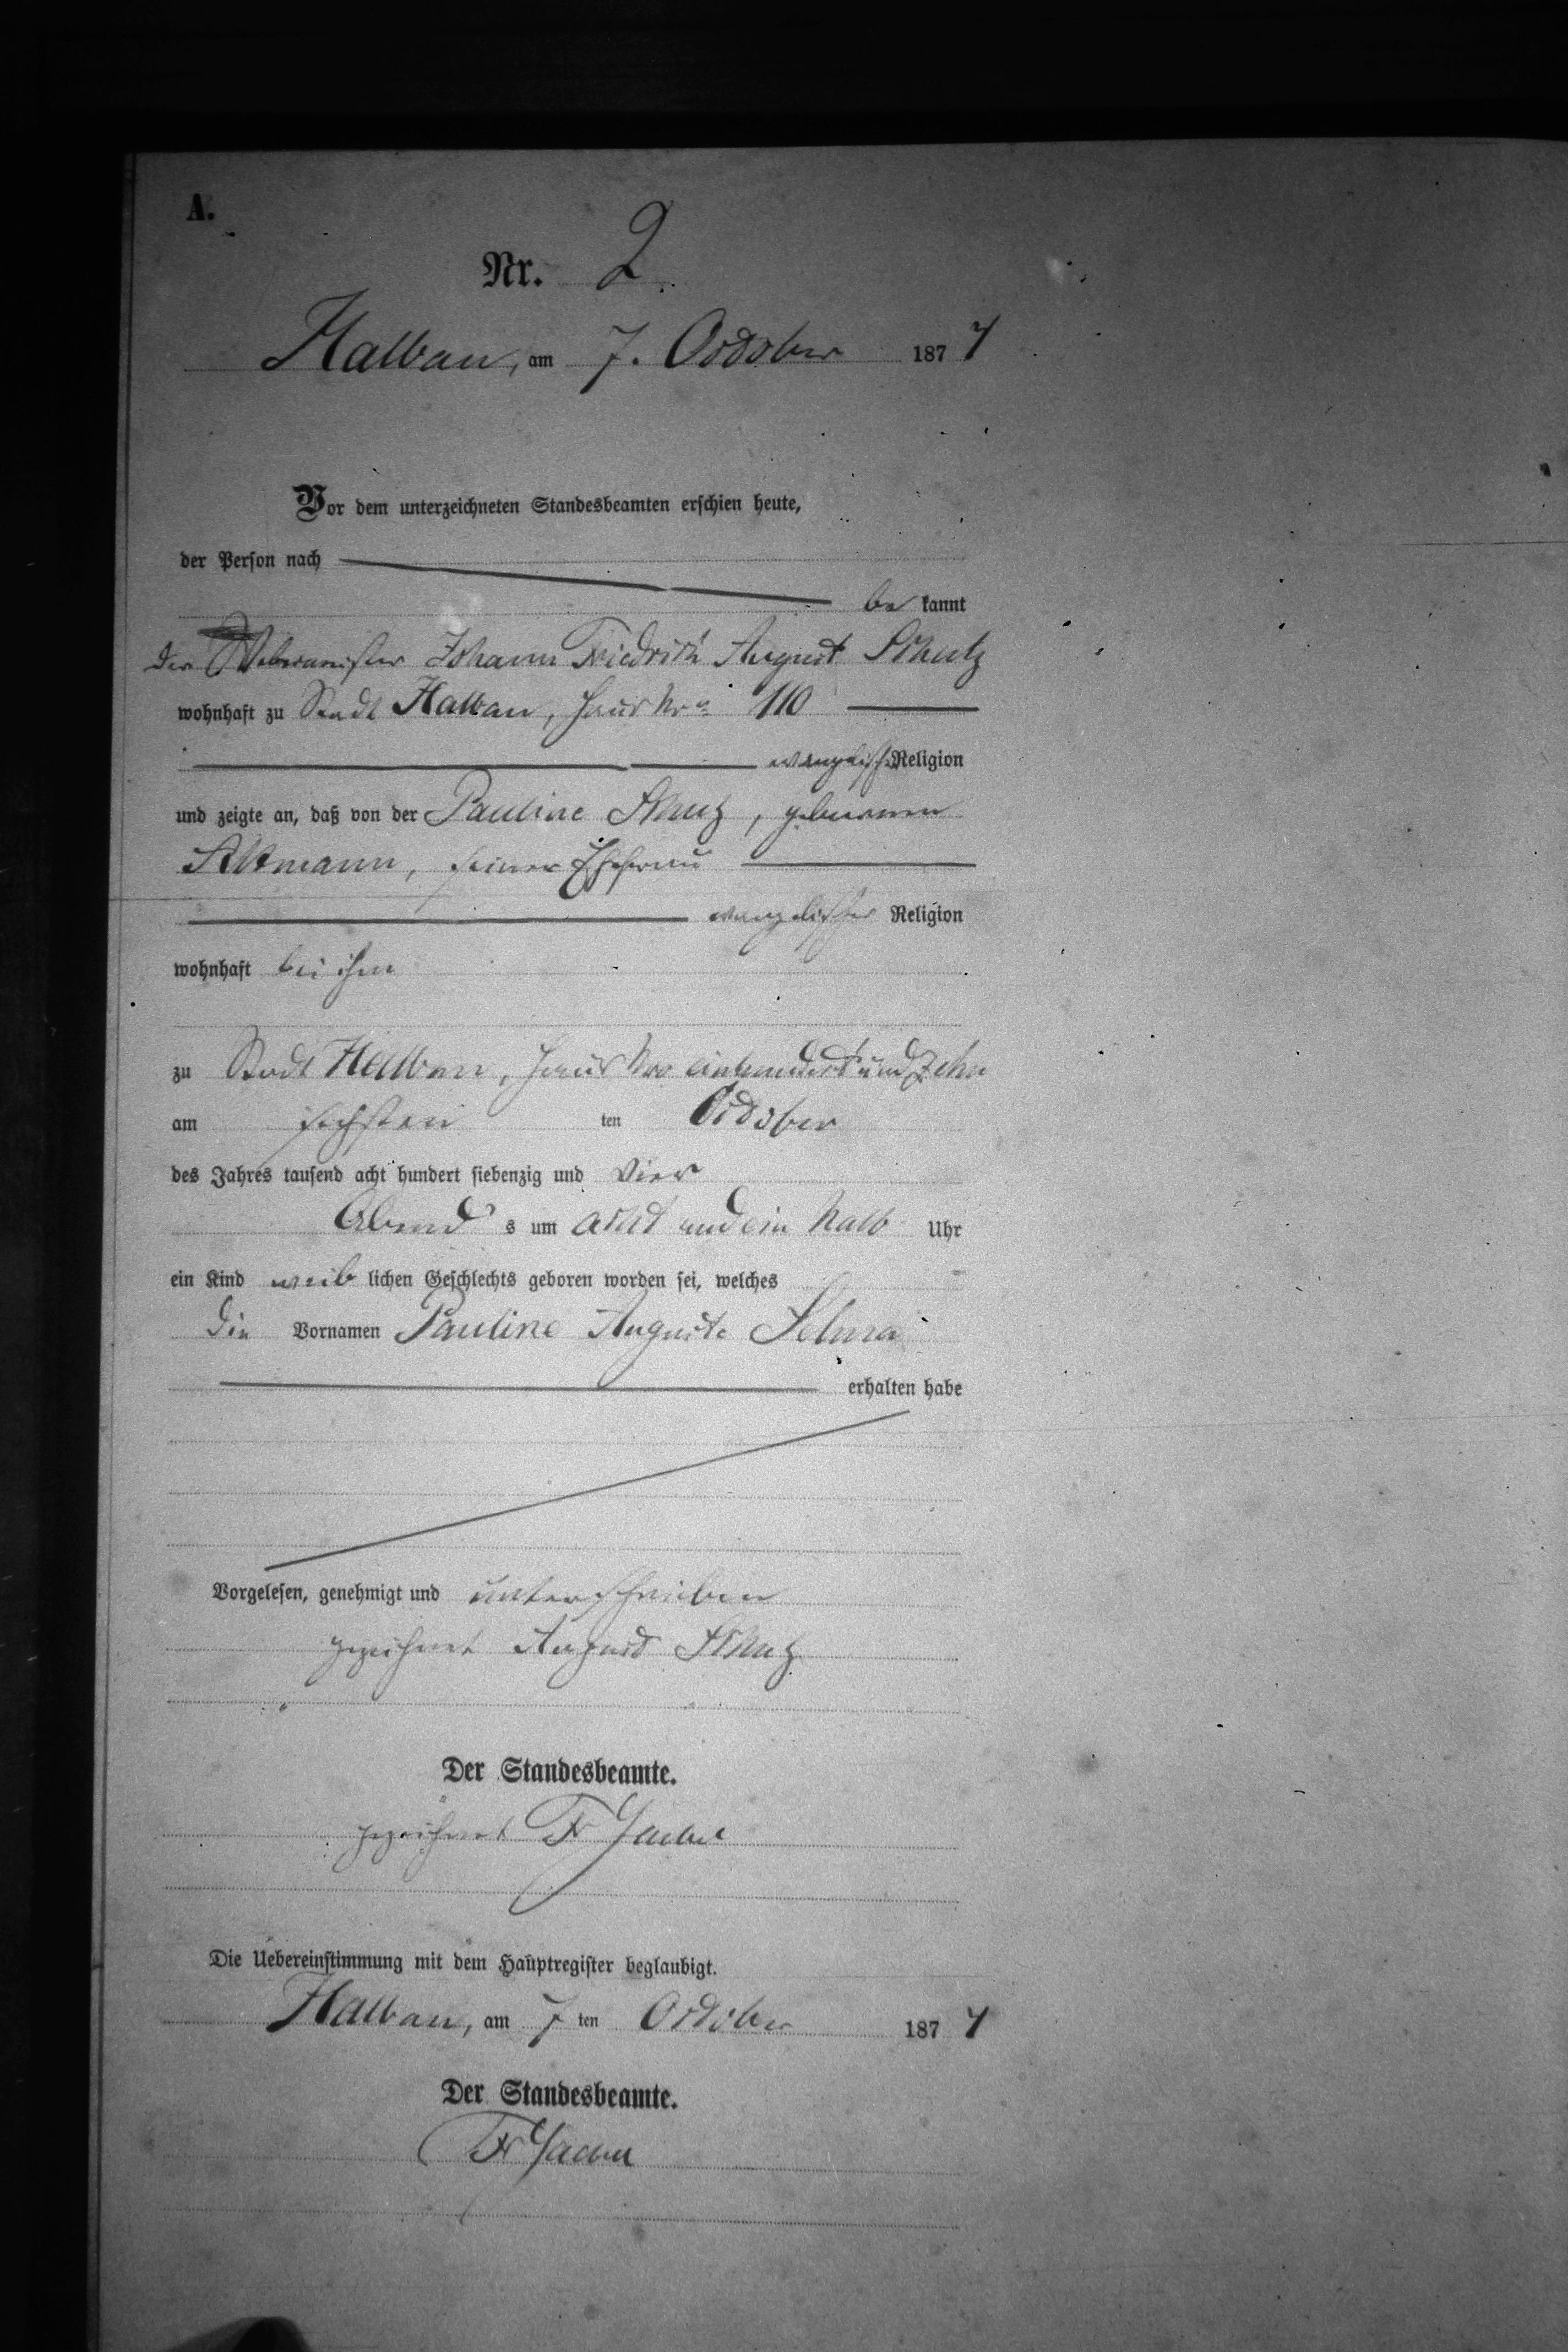 A.
Nr. 2.
Halbau, am 7. October 1874
Vor dem unterzeichneten Standesbeamten erschien heute,
der Person nach
be kannt
der Webermeister Johann Friedrich August Schulz
wohnhaft zu Stadt Halbau, Haus Nro 110
evangelischer Religion
und zeigte an, daß von der Pauline Schulz, geborenen
Altmann, seiner Ehefrau
evangelischer Religion
wohnhaft bei ihm
zu Stadt Halbau, Haus Nro einhundert und zehn
am sechsten ten October
des Jahres tausend acht hundert siebenzig und vier
Abend s um acht und ein halb Uhr
ein Kind weib lichen Geschlechts geboren worden sei, welches
die Vornamen Pauline Auguste Selma
erhalten habe
Vorgelesen, genehmigt und unterschrieben
gezeichnet August Schulz
Der Standesbeamte.
gezeichnet Fr
Die Uebereinstimmung mit dem Hauptregister beglaubigt.
Halbau, am 7 ten October 1874
Der Standesbeamte.
Fr